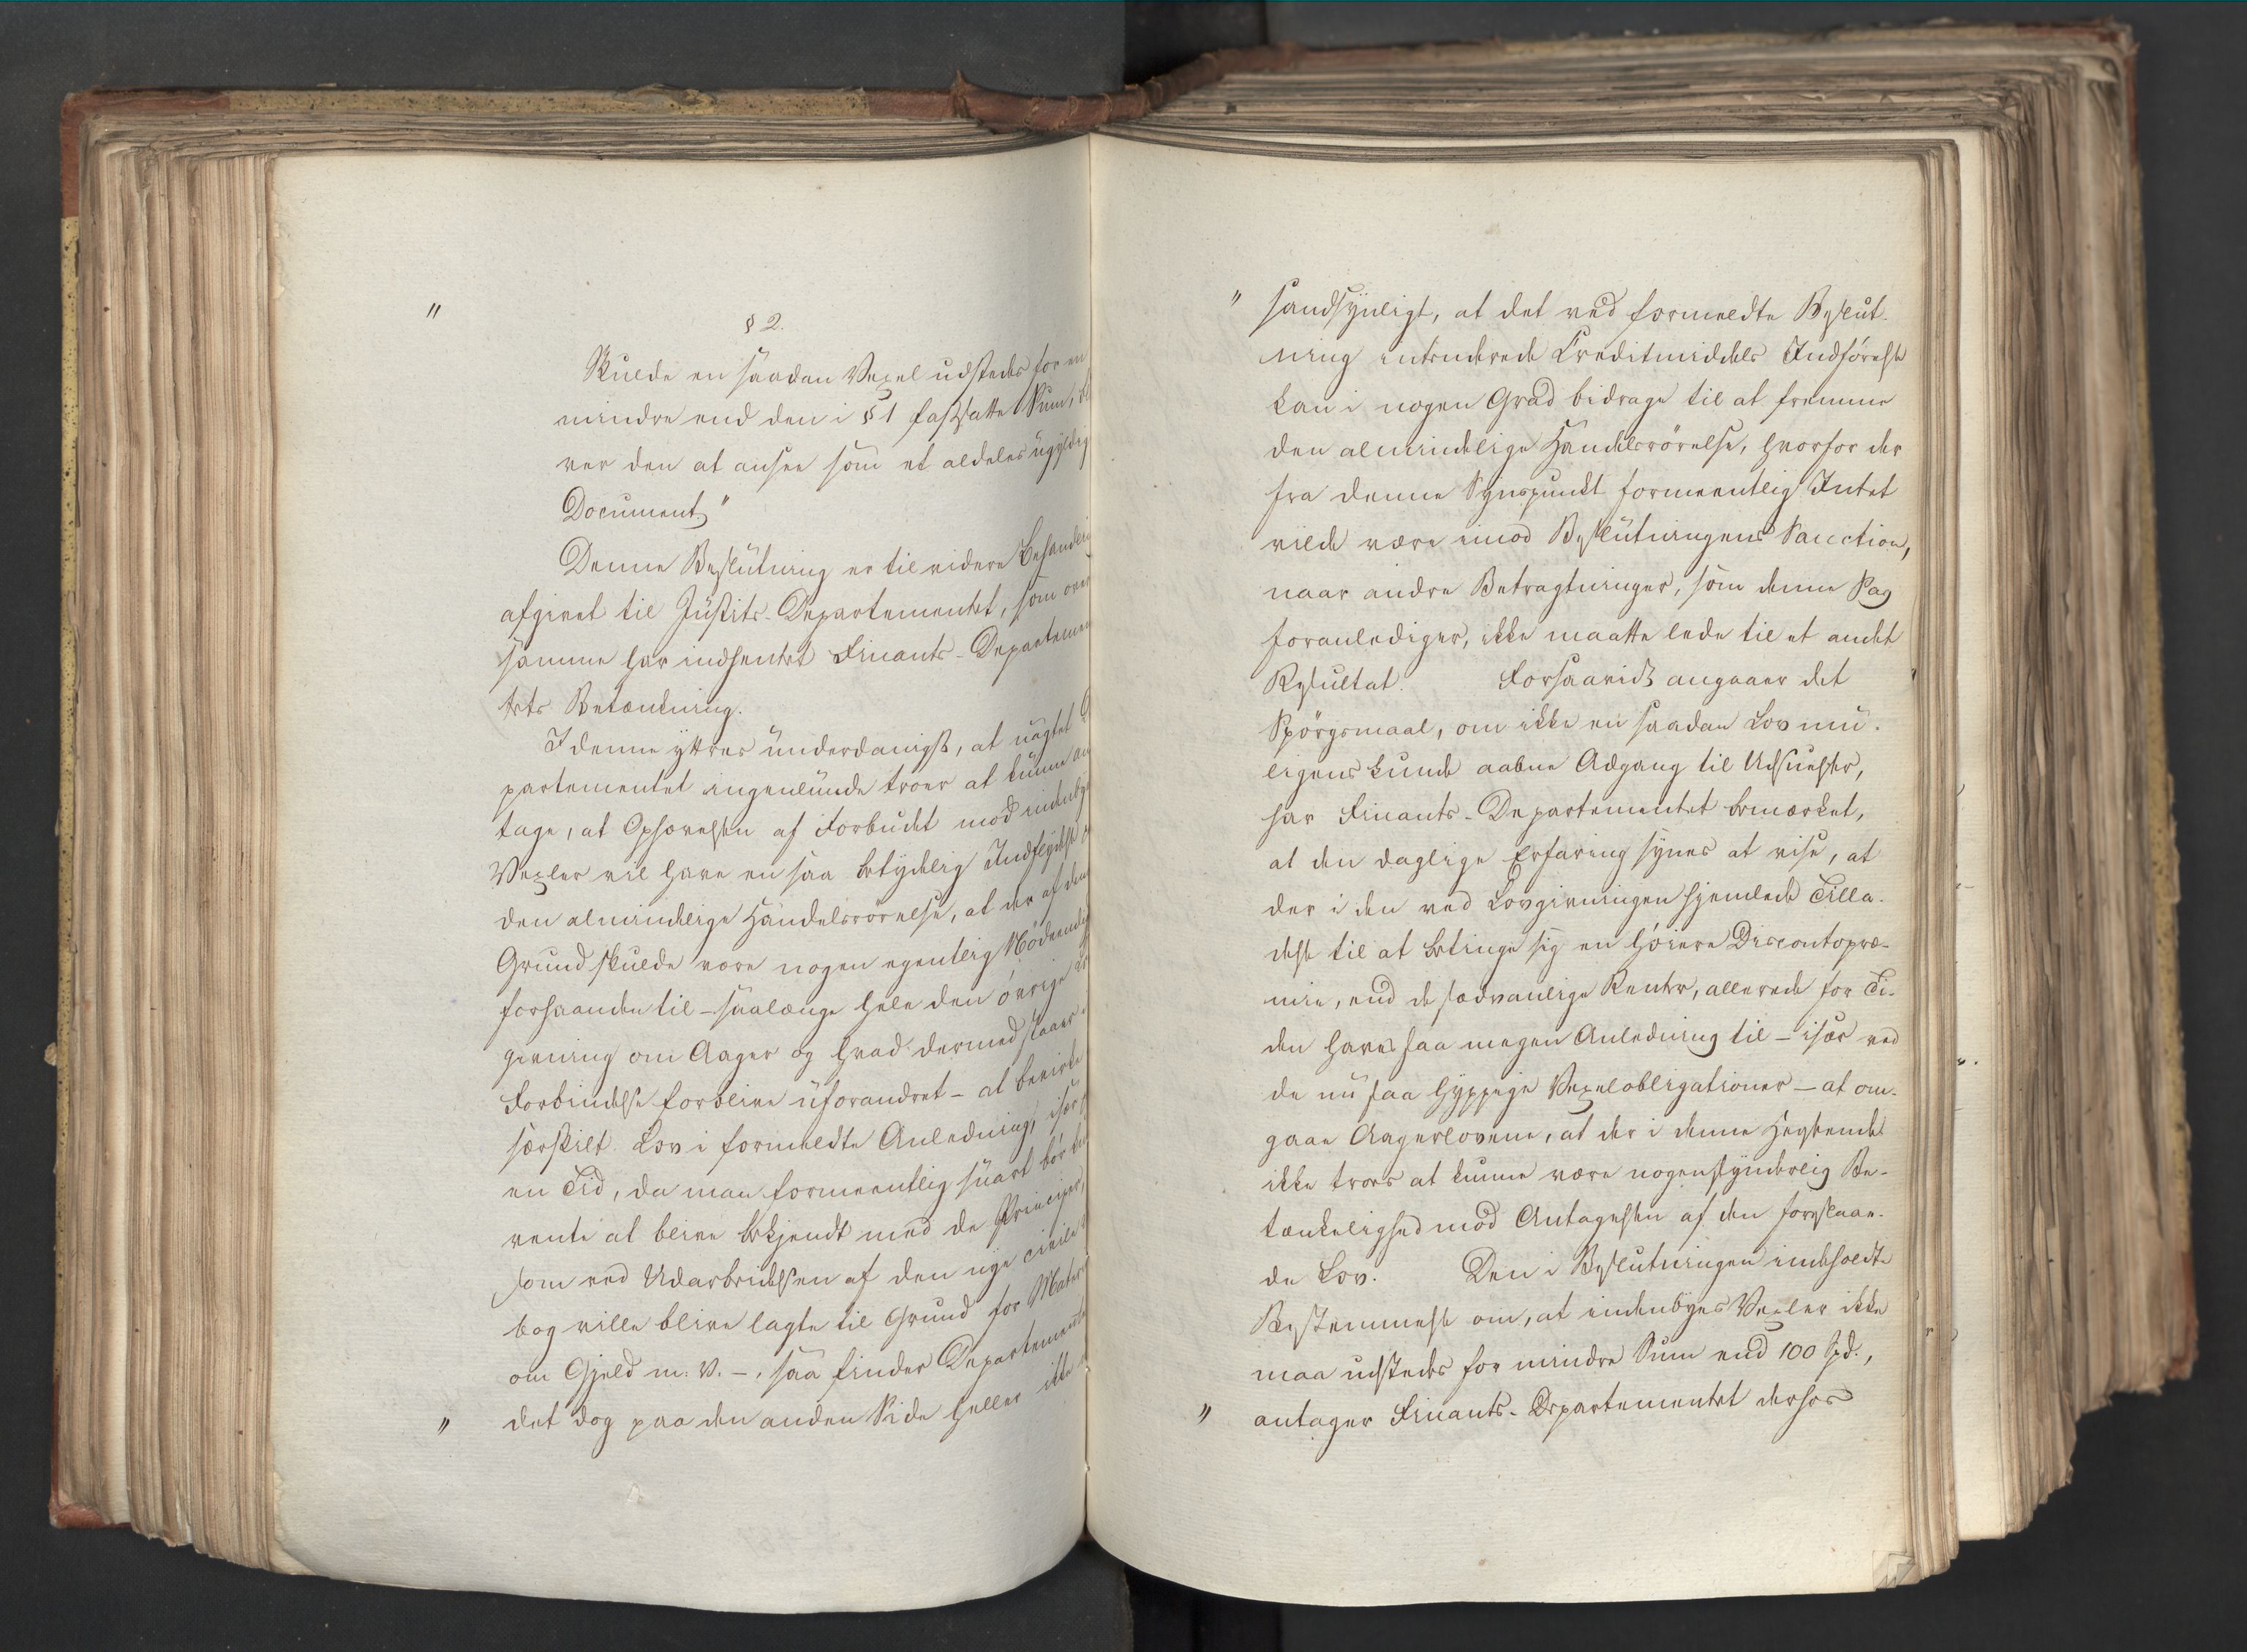 "
§ 2.
Skulde en saadan Vexel udstedes for en
mindre end den i § 1 fastsatte Sum, bli
ver den at ansee som et aldeles ugyldig
Document"
Denne Beslutning er til videre Behandlin
afgivet til Justits-Departementet, som om
samme har indhentet Finants-Departemen
tets Betænkning.
I denne yttres underdanigst, at uagtet D
partementet ingenlunde troer at kunne an
tage, at Ophævelsen af Forbudet mod indenbys
Vexler vil have en saa betydelig Indflydelse p
den almindelige Handelsrörelse, at der af den
Grund skulde være nogen egentlig Nödvendig
forhaanden til – saalænge hele den övrige Lov
givning om Aager og hvad dermed staaer i
Forbindelse forblive uforandret – at bevirke
særskilt Lov i formeldte Anledning, især p
en Tid, da man formeentlig snart bör kun
vente at blive bekjendt med de Principer,
som ved Udarbeidelsen af den nye civile L
bog ville blive lagte til Grund for Materi
om Gjeld m: V. –, saa finder Departemente
" det dog paa den anden Side heller ikke u
" sandsynligt, at det ved formeldte Beslut-
ning intenderede Creditmiddels Indförelse
kan i nogen Grad bidrage til at fremme
den almindelige Handelsrörelse, hvorfor der
fra denne Synspunkt formeentlig Intet
vilde være imod Beslutningens Sanction,
naar andre Betragtninger, som denne Sag
foranlediger, ikke maatte lede til et andet
Resultat. Forsaavidt angaaer det
Spörgsmaal, om ikke en saadan Lov mu-
ligens kunde aabne Adgang til Udsuelser,
har Finants-Departementet bemærket,
at den daglige Erfaring synes at vise, at
der i den ved Lovgivningen hjemlede Tilla-
delse til at betinge sig en höiere Discontopræ-
mie, end de sædvanlige Renter, allerede for Ti-
den haves saa megen Anledning til – især ved
de nu saa hyppige Vexelobligationer – at om-
gaae Aagerlovene, at der i denne Henseende
ikke troes at kunne være nogensynderlig Be-
tænkelighed mod Antagelsen af den foreslaae-
de Lov. Den i Beslutningen indeholdte
Bestemmelse om, at indenbyes Vexler ikke
maa udstedes for mindre Sum end 100 Spd.,
" antager Finants-Departementet derhos